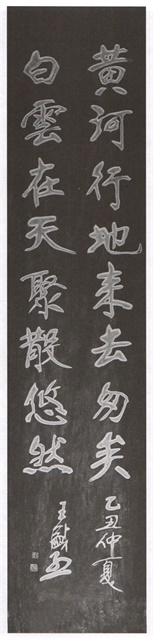 黄河行地来去匆矣
白雲在天聚散悠然
乙丑仲夏
王